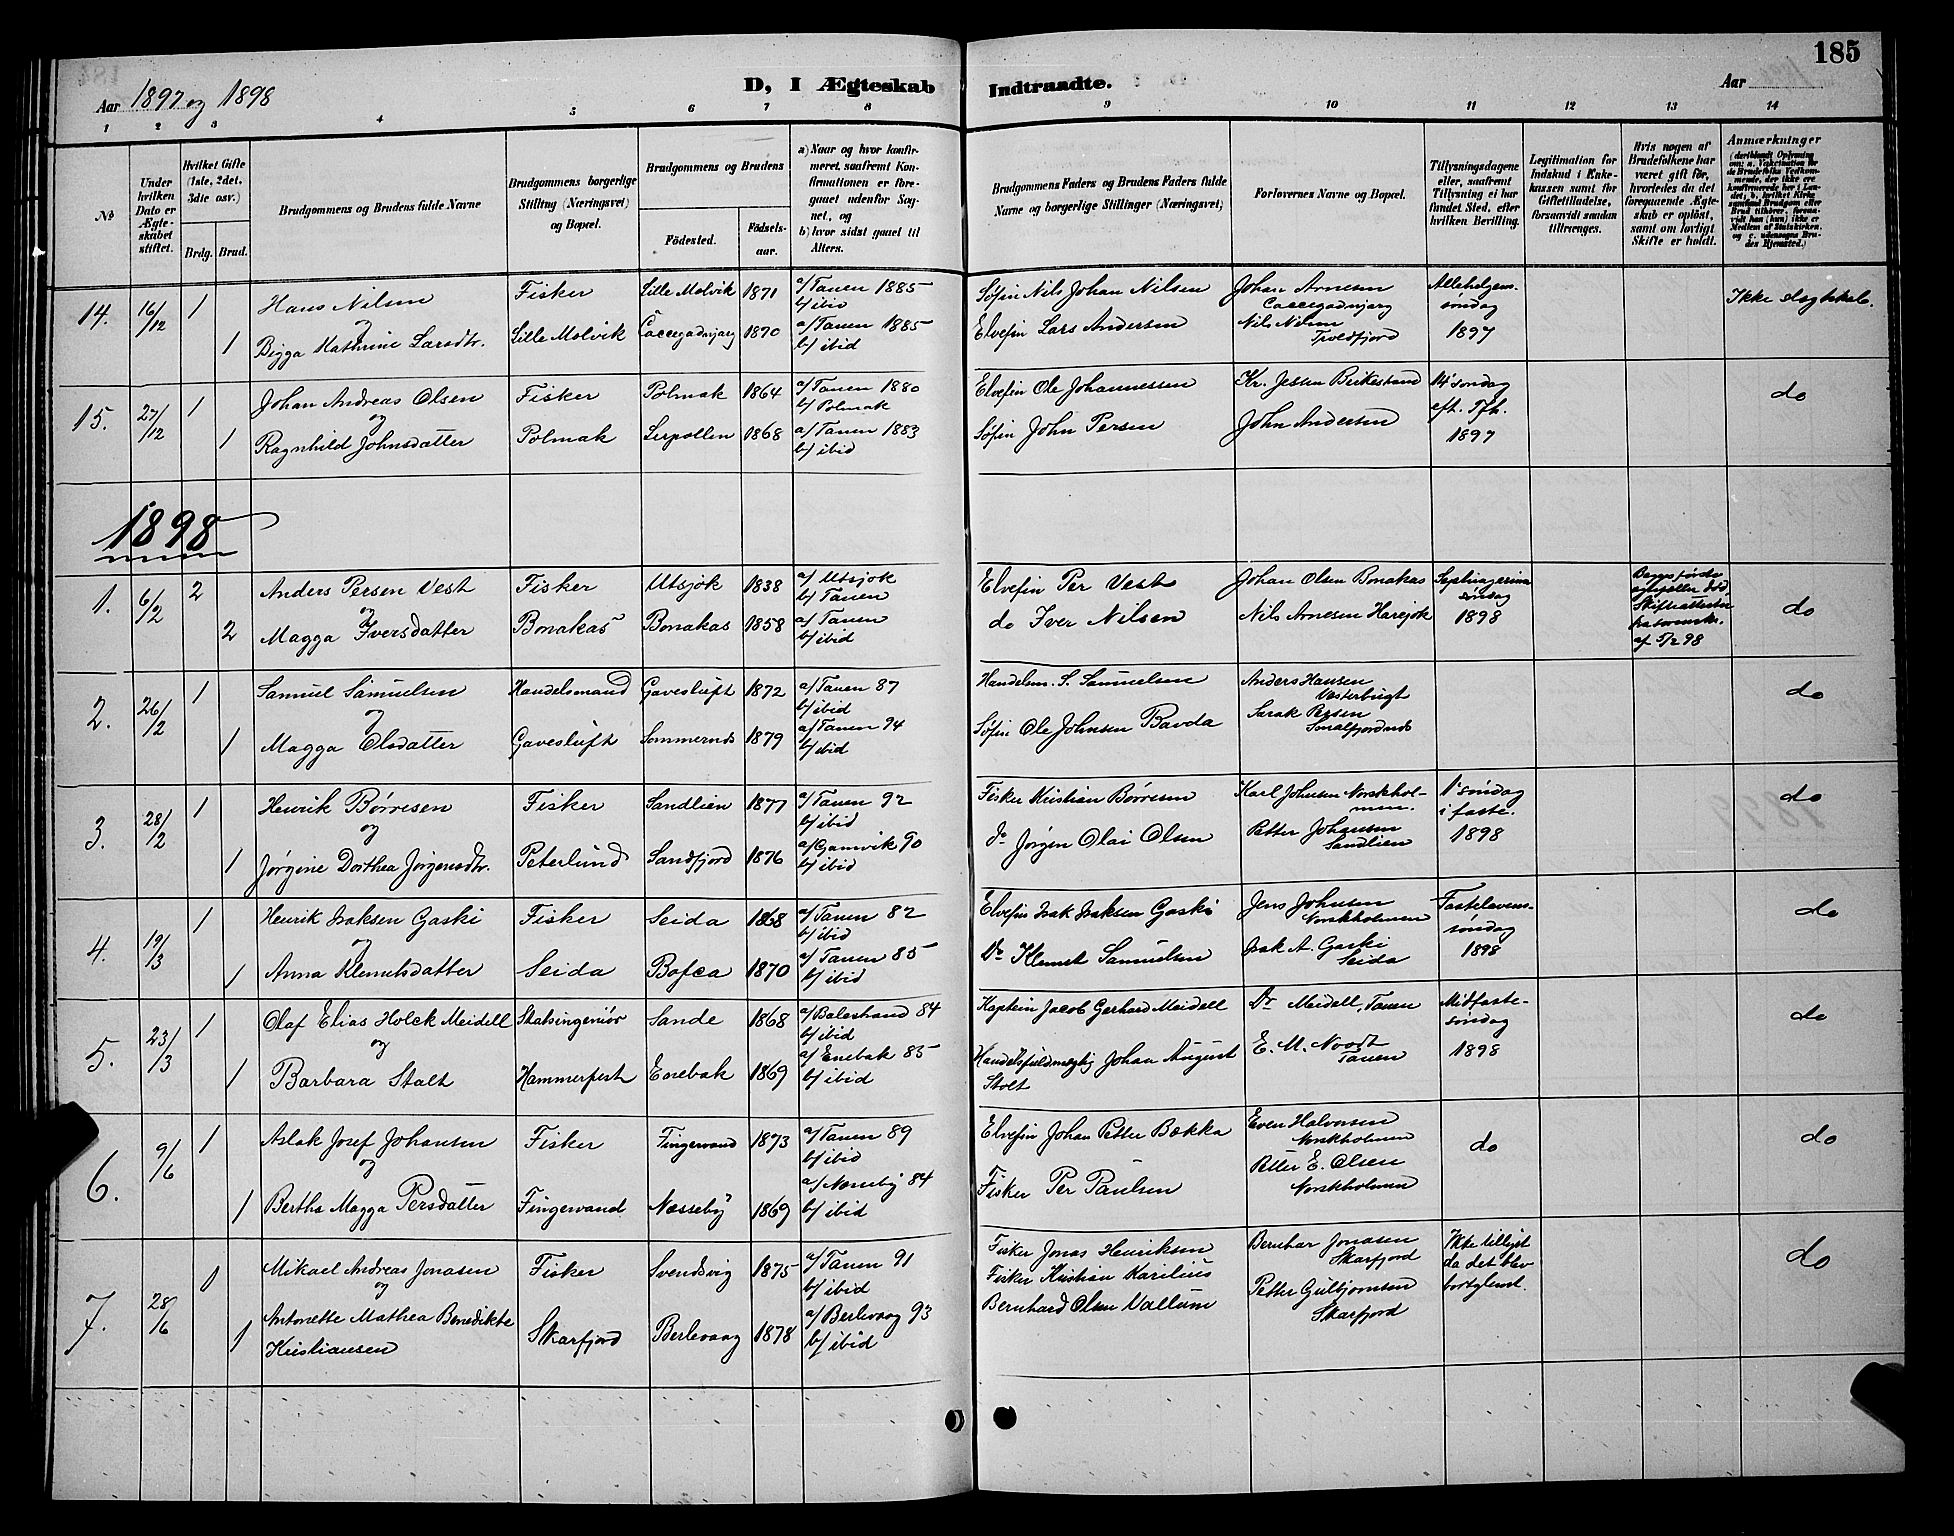 185
Aar 1897 og 1898
D, I Ægteskab Indtraadte.
Aar
1 2 3 4 5 6 7 8 9 10 11 12 13 14
No
Under hvilken Dato er Ægteskabet stiftet.
Hvilket Gifte (1ste, 2det, 3die osv.)
Brdg. Brud.
Brudgommens og Brudens fulde Navne
Brudgommens borgerlige Stilling (Næringsvei) og Bopæl.
Brudgommens og Brudens
Födested.
Födsels-aar.
a) Naar og hvor konfirmeret, saafremt Konfirmationen er foregaaet udenfor Sognet, og
b) hvor sidst gaaet til Alters.
Brudgommens Faders og Brudens Faders fulde Navne og borgerlige Stillinger (Næringsvei)
Forlovernes Navne og Bopæl.
Tillysningsdagene eller, saafremt Tillysning ei har fundet Sted, efter hvilken Bevilling.
Legitimation for Indskud i Enkekassen samt for Giftetilladelse, forsaavidt saadan tiltrænges.
Hvis nogen af Brudefolkene har været gift för, hvorledes da det foregaaende Ægteskab er oplöst, samt om lovligt Skifte er holdt.
Anmærkninger
14. 16/12 1 Hans Nilsen Fisker Lille Molvik 1871 a/ Tanen 1885 b/ ibid Søfin Nils Johan Nilsen Johan Arnesen Caccegadnjarg Allehelgens- Ikke slægtskab.
og søndag
1 Bigga Kathrine Larsdtr. Lille Molvik Caccegadnjarg 1870 a/ Tanen 1885 b/ ibid Elvefin Lars Andersen Nils Nilsen Troldfjord 1897
15. 27/12 1 Johan Andreas Olsen Fisker Polmak 1864 a/ Tanen 1880 b/ Polmak Elvefin Ole Johannessen Kr. Jessen Birkestrand 14' søndag do
og eft. Tfh.
1 Ragnhild Johnsdatter Polmak Lerpollen 1868 a/ Tanen 1883 b/ ibid Søfin John Persen John Andersen 1897
1898
1. 6/2 2 Anders Persen Vest Fisker Utsjok 1838 a/ Utsjok b/ Tanen Elvefin Per Vest Johan Olsen Bonakas Septuagesima Begges første
og søndag
2 Magga Iversdatter Bonakas Bonakas 1858 a/ Tanen b/ ibid do Iver Nilsen Nils Arnesen Harejok 1898 af 5/2 98 do
2. 26/2 1 Samuel Samuelsen Handelsmand Gavesluft 1872 a/ Tanen 87 b/ ibid Handelsm. S. Samuelsen Anders Hansen Vesterbugt do
og
1 Magga Olsdatter Gavesluft Sommernes 1879 a/ Tanen 94 b/ ibid Søfin Ole Johnsen Bavda Sarak Persen
3. 28/2 1 Henrik Børresen Fisker Sandlien 1877 a/ Tanen 92 b/ ibid Fisker Kristian Børresen Karl Johnsen Norskhol- men. 1' søndag do
og i faste.
1 Jørgine Dorthea Jørgensdtr. Peterlund Sandfjord 1876 a/ Gamvik 90 b/ ibid do Jørgen Olai Olsen Petter Johansen Sandlien 1898
4. 19/3 1 Henrik Isaksen Gaski Fisker Seida 1868 a/ Tanen 82 b/ ibid Elvefin Isak Isaksen Gaski Jens Johnsen Norskholmen Fastelavens- do
og søndag
1 Anna Klemetsdatter Seida Bofca 1870 a/ Tanen 85 b/ ibid Do Klemet Samuelsen Isak A. Gaski Seida 1898
5. 23/3 1 Olaf Elias Holck Meidell Statsingeniør Sande 1868 a/ Balestrand 84 b/ ibid Kaptein Jacob Gerhard Meidell Dr Meidell, Tanen Midfaste- do
og søndag
1 Barbara Stolt Hammerfest Enebak 1869 a/ Enebak 85 b/ ibid Handelsfuldmægtig Johan August Stolt E. M. Noodt Tanen 1898
6. 9/6 1 Aslak Josef Johansen Fisker Fingervand 1873 a/ Tanen 89 b/ ibid Elvefin Johan Petter Bækka Even Halvorsen Norskholmen do do
og
1 Bertha Magga Persdatter Fingervand Næsseby 1869 a/ Næsseby 84 b/ ibid Fisker Per Paulsen Petter E. Olsen Norskholmen
7. 28/6 1 Mikael Andreas Jonasen Fisker Svendsvig 1875 a/ Tanen 91 b/ ibid Fisker Jonas Henriksen Bernhar Jonasen Skarfjord Ikke tillyst do
og Fisker Kristian Karilius da det blev
1 Antonette Mathea Benedikte Kristiansen Skarfjord Berlevaag 1878 a/ Berlevaag 93 b/ ibid Bernhard Olsen Vallum Petter Gulbjornsen Skarfjord bortglemt.